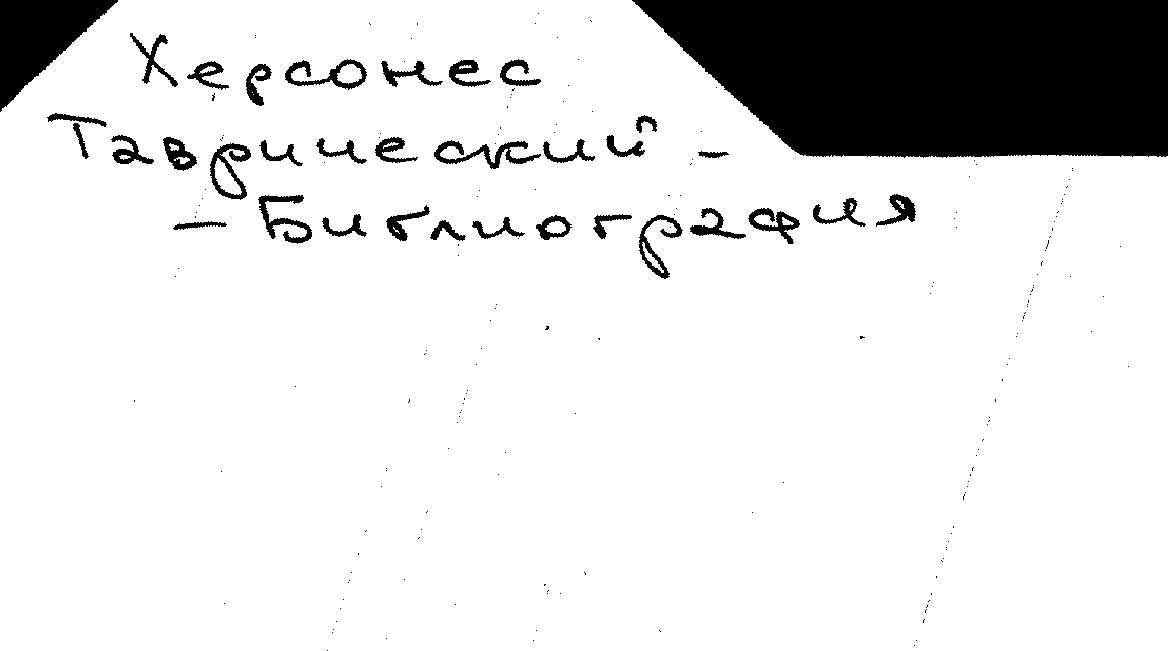 Херсонес
Таврический -
- Библиография